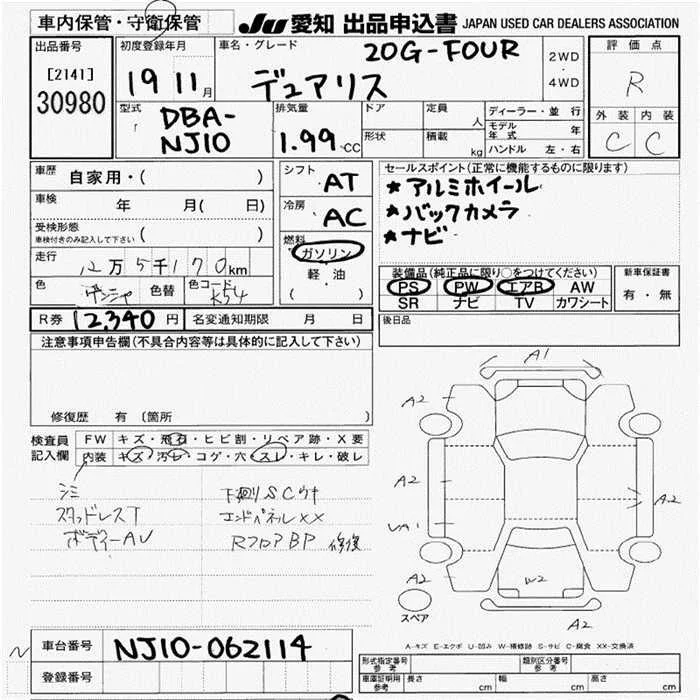 車内保管・守衛保管
JU 愛知 出品申込書 JAPAN USED CAR DEALERS ASSOCIATION
出品番号
[2141]
30980
初度登録年月
19 11月
車名・グレード
20G-FOUR
デュアリス
2WD
・
4WD
評価点
R
外装 内装
C C
型式
DBA-
NJ10
排気量
1.99cc
ドア
形状
定員 人
積載 kg
ディーラー・並 行
モデル年式 年
ハンドル 左・右
車歴 自家用・( )
車検 年 月( 日)
受検形態
車検付きのみ記入して下さい ( )
走行 12万5千170km
色
色替
色コード
K54
シフト AT
冷房 AC
燃料
ガソリン
軽・油
( )
セールスポイント(正常に機能するものに限ります)
★アルミホイール
★バックカメラ
★ナビ
装備品(純正品に限り○をつけてください)
PS PW エアB AW
SR ナビ TV カワシート
新車保証書
有・無
R券 12,340円 名変通知期限 月 日
後日品
注意事項申告欄(不具合内容等は具体的に記入して下さい)
修復歴 有 〔箇所
検査員
記入欄
FW キズ・飛石・ヒビ割・リペア跡・X要
内装 キズ・汚レ・コゲ・穴・スレ・キレ・破レ
シミ
スタッドレスT
ボディーAU
下廻りSCサナ
エンドパネルXX
RフロアBP 修復
A1
A2
A2
A2
UA1
A2
W2
A2
スペア
A-キズ E-エクボ U-凹み W-補修跡 S-サビ C-腐食 XX-交換済
車台番号 NJ10-062114
登録番号
形式指定番号
参考
類別区分番号
参考
車庫証明用
参考
長さ cm 幅 cm 高さ cm